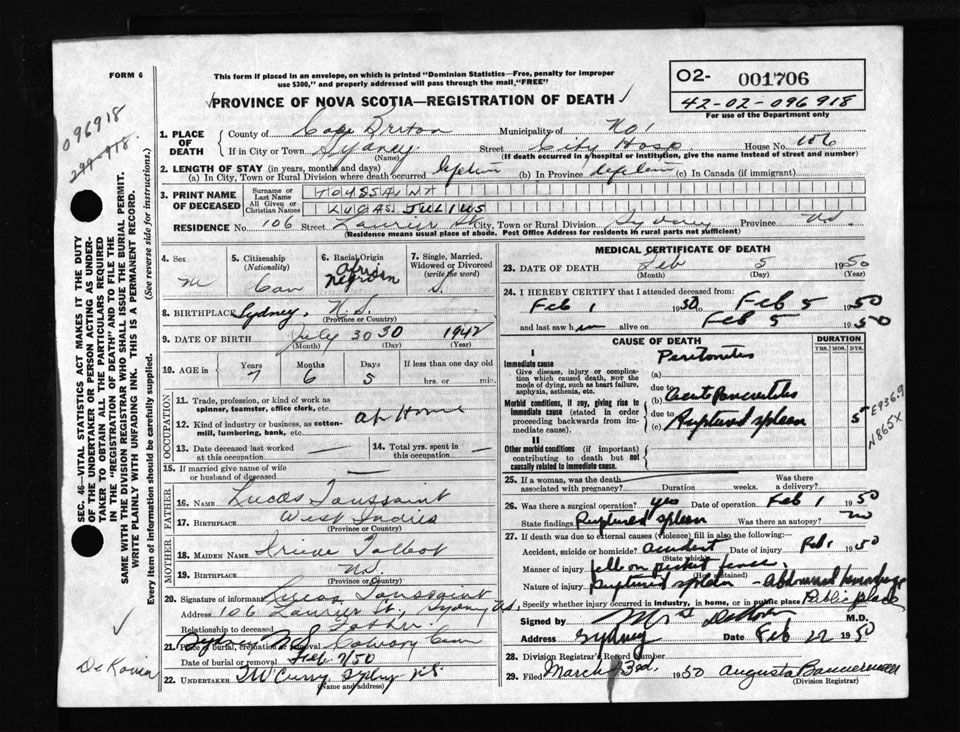 FORM 6
This form if placed in an envelope, on which is printed "Dominion Statistics—Free, penalty for improper
use $300," and properly addressed will pass through the mail "FREE"
O2- 001706
42-02-096918
For use of the Department only
096918
PROVINCE OF NOVA SCOTIA—REGISTRATION OF DEATH
1. PLACE OF DEATH
County of Cape Breton Municipality of No!
If in City or Town Sydney Street City Hosp House No. 106
(Name) (If death occurred in a hospital or institution, give the name instead of street and number)
2. LENGTH OF STAY (in years, months and days)
(a) In City, Town or Rural Division where death occurred lifetime (b) In Province lifetime (c) In Canada (if immigrant)
3. PRINT NAME OF DECEASED
Surname or Last Name TOUSSAINT
All Given or Christian Names LUCAS JULIUS
RESIDENCE No. 106 Street Laurier St City, Town or Rural Division Sydney Province NS
(Residence means usual place of abode. Post Office Address for residents in rural parts not sufficient)
4. Sex M
5. Citizenship (Nationality) Can
6. Racial Origin African Negroan
7. Single, Married, Widowed or Divorced (write the word) S.
8. BIRTHPLACE Sydney, N.S.
(Province or Country)
9. DATE OF BIRTH July 30 30 1942
(Month) (Day) (Year)
10. AGE in Years 7 Months 6 Days 5 If less than one day old
hrs. or min.
OCCUPATION
11. Trade, profession, or kind of work as
spinner, teamster, office clerk, etc. at Home
12. Kind of industry or business, as cotton-
mill, lumbering, bank, etc.
13. Date deceased last worked at this occupation — 14. Total yrs. spent in this occupation —
15. If married give name of wife
or husband of deceased
FATHER
16. NAME Lucas Toussaint
17. BIRTHPLACE West Indies
(Province or Country)
MOTHER
18. MAIDEN NAME Irene Talbot
19. BIRTHPLACE NS.
(Province or Country)
20. Signature of informant Lucas Toussaint
Address 106 Laurier St. Sydney NS.
Relationship to deceased Father
21. Place of burial, cremation or removal Sydney NS Calvary Cem
Date of burial or removal Feb 7/50
22. UNDERTAKER TW Curry Sydney NS
(Name and address)
MEDICAL CERTIFICATE OF DEATH
23. DATE OF DEATH Feb 5 1950
(Month) (Day) (Year)
24. I HEREBY CERTIFY that I attended deceased from:
Feb 1 1950 Feb 5 1950
and last saw him alive on Feb 5 1950
CAUSE OF DEATH
DURATION
YRS. MOS. DYS.
I
Immediate cause
Give disease, injury or complica-
tion which caused death, NOT the
mode of dying, such as heart failure,
asphyxia, asthenia, etc.
Peritonitis
(a)
due to
(b) Acute Pancreatitis
Morbid conditions, if any, giving rise to
immediate cause (stated in order
proceeding backwards from im-
mediate cause).
due to
(c) Ruptured spleen 5
E936.9
N865X
II
Other morbid conditions (if important)
contributing to death but not
causally related to immediate cause.
25. If a woman, was the death
associated with pregnancy? Duration weeks. Was there
a delivery?
26. Was there a surgical operation? yes Date of operation Feb 1 1950
State findings Ruptured spleen Was there an autopsy? no
27. If death was due to external causes (violence) fill in also the following:—
Accident, suicide or homicide? accident Date of injury Feb 1 1950
(State which)
Manner of injury fell on picket fence
(How sustained)
Nature of injury Ruptured spleen - Abdominal hemorrhage
Specify whether injury occurred in industry, in home, or in public place Public place
Signed by M.D.
Address Sydney Date Feb 22 1950
28. Division Registrar's Record Number
29. Filed March 3rd. 1950 Augusta Bannerman
(Division Registrar)
SEC. 46 VITAL STATISTICS ACT MAKES IT THE DUTY
OF THE UNDERTAKER OR PERSON ACTING AS UNDER-
TAKER TO OBTAIN ALL THE PARTICULARS REQUIRED
IN THE "REGISTRATION OF DEATH" AND TO FILE THE
SAME WITH THE DIVISION REGISTRAR WHO SHALL ISSUE THE BURIAL PERMIT.
WRITE PLAINLY WITH UNFADING INK. THIS IS A PERMANENT RECORD.
Every item of information should be carefully supplied. (See reverse side for instructions.)